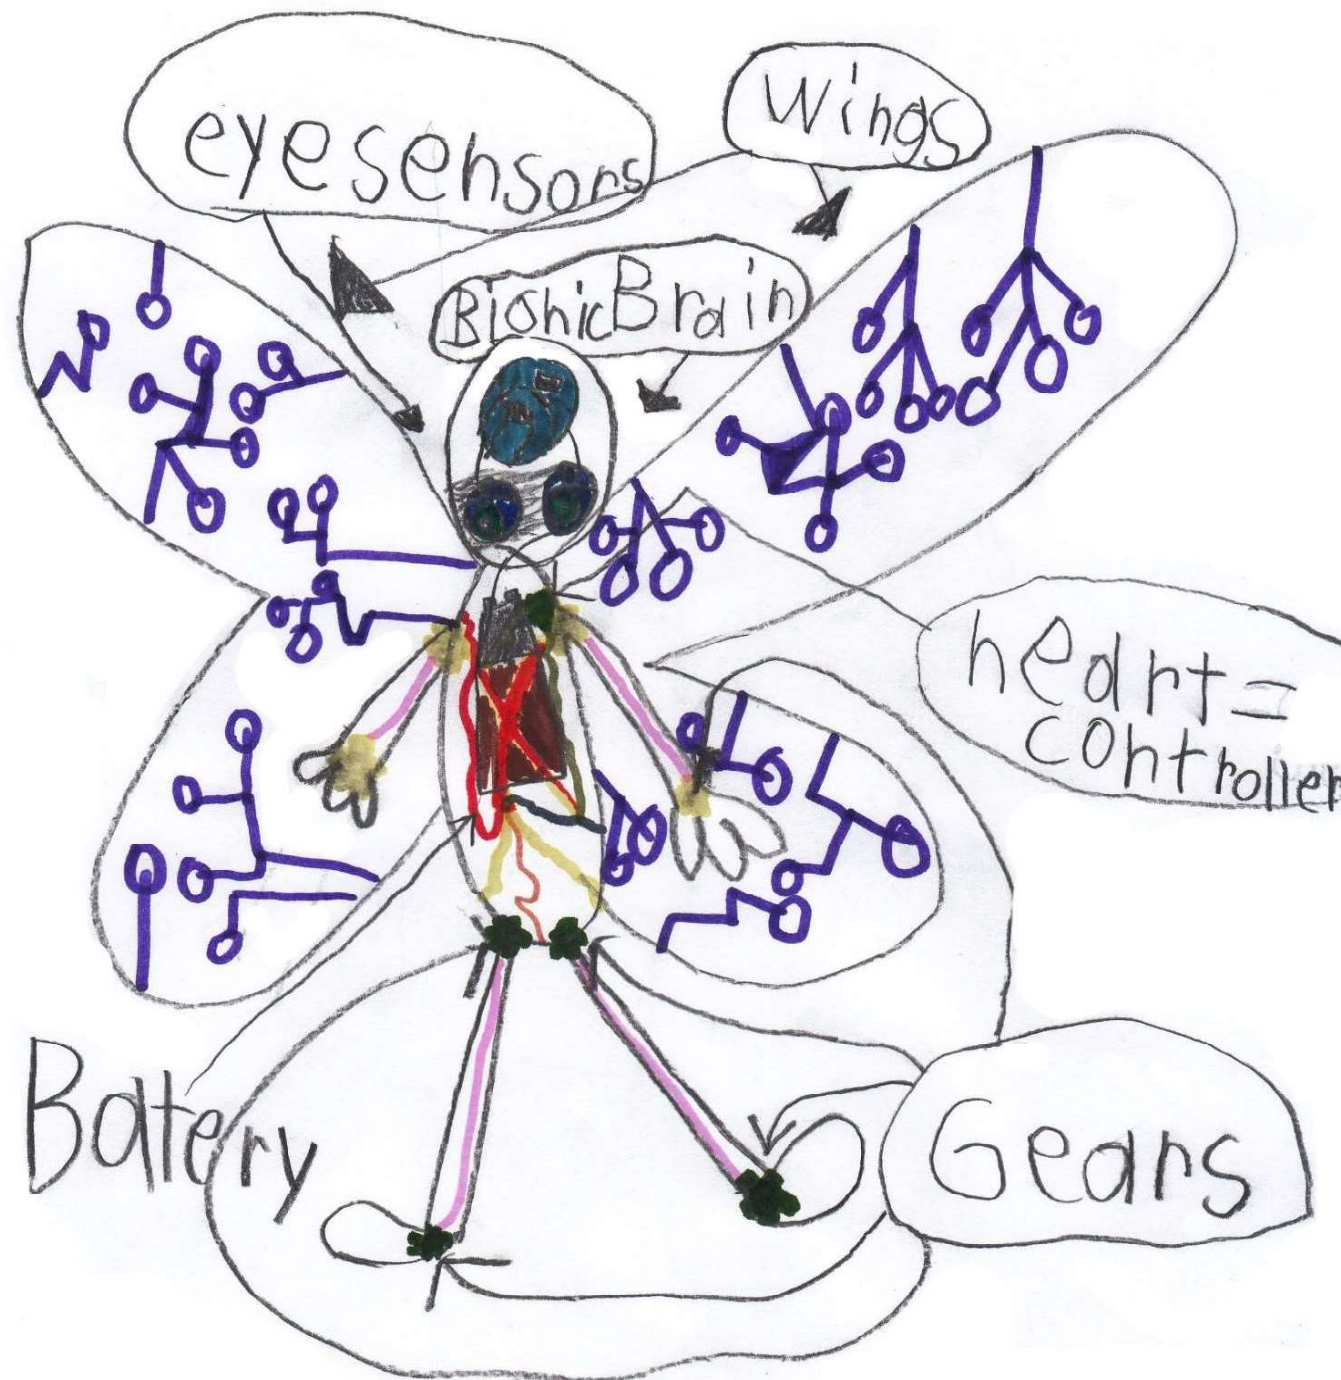 eyesensors
Wings
BionicBrain
heart=
controller
Battery
Gears